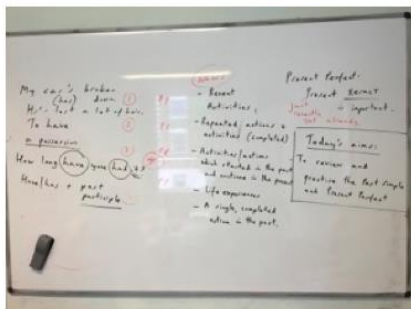 My car's broken
(has) down ①
He's lost a lot of hair.
To have ②
a possession
③
How long have you had it?
Have/has + past
participle.
- Recent
Activities;
- Repeated actions &
activities (completed)
- Activities/actions
which started in the past
and continue in the present
- Life experiences
- A single, completed
action in the past.
Present Perfect.
Present RESULT
is important.
just
recently
yet already
Today's aims:
To review and
practise the Past Simple
and Present Perfect